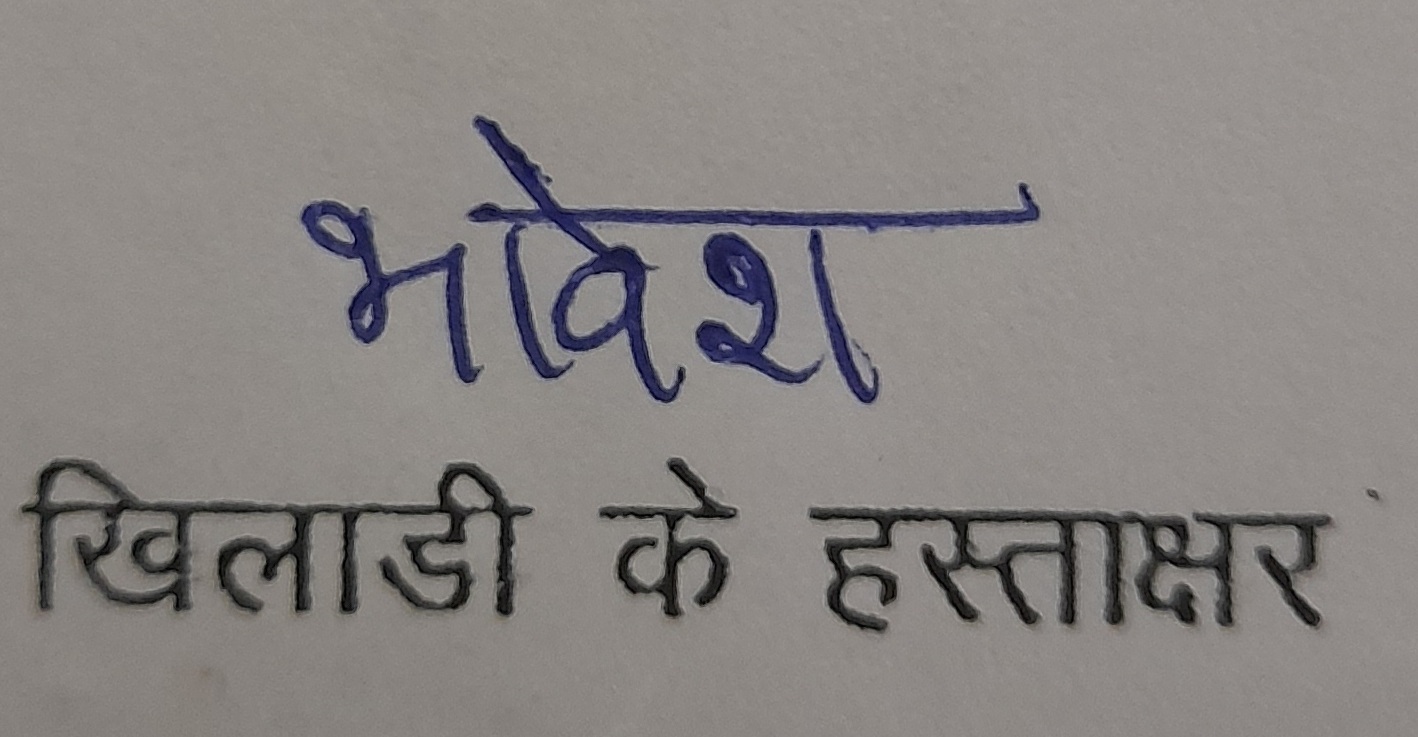 भावेश
खिलाडी के हस्ताक्षर